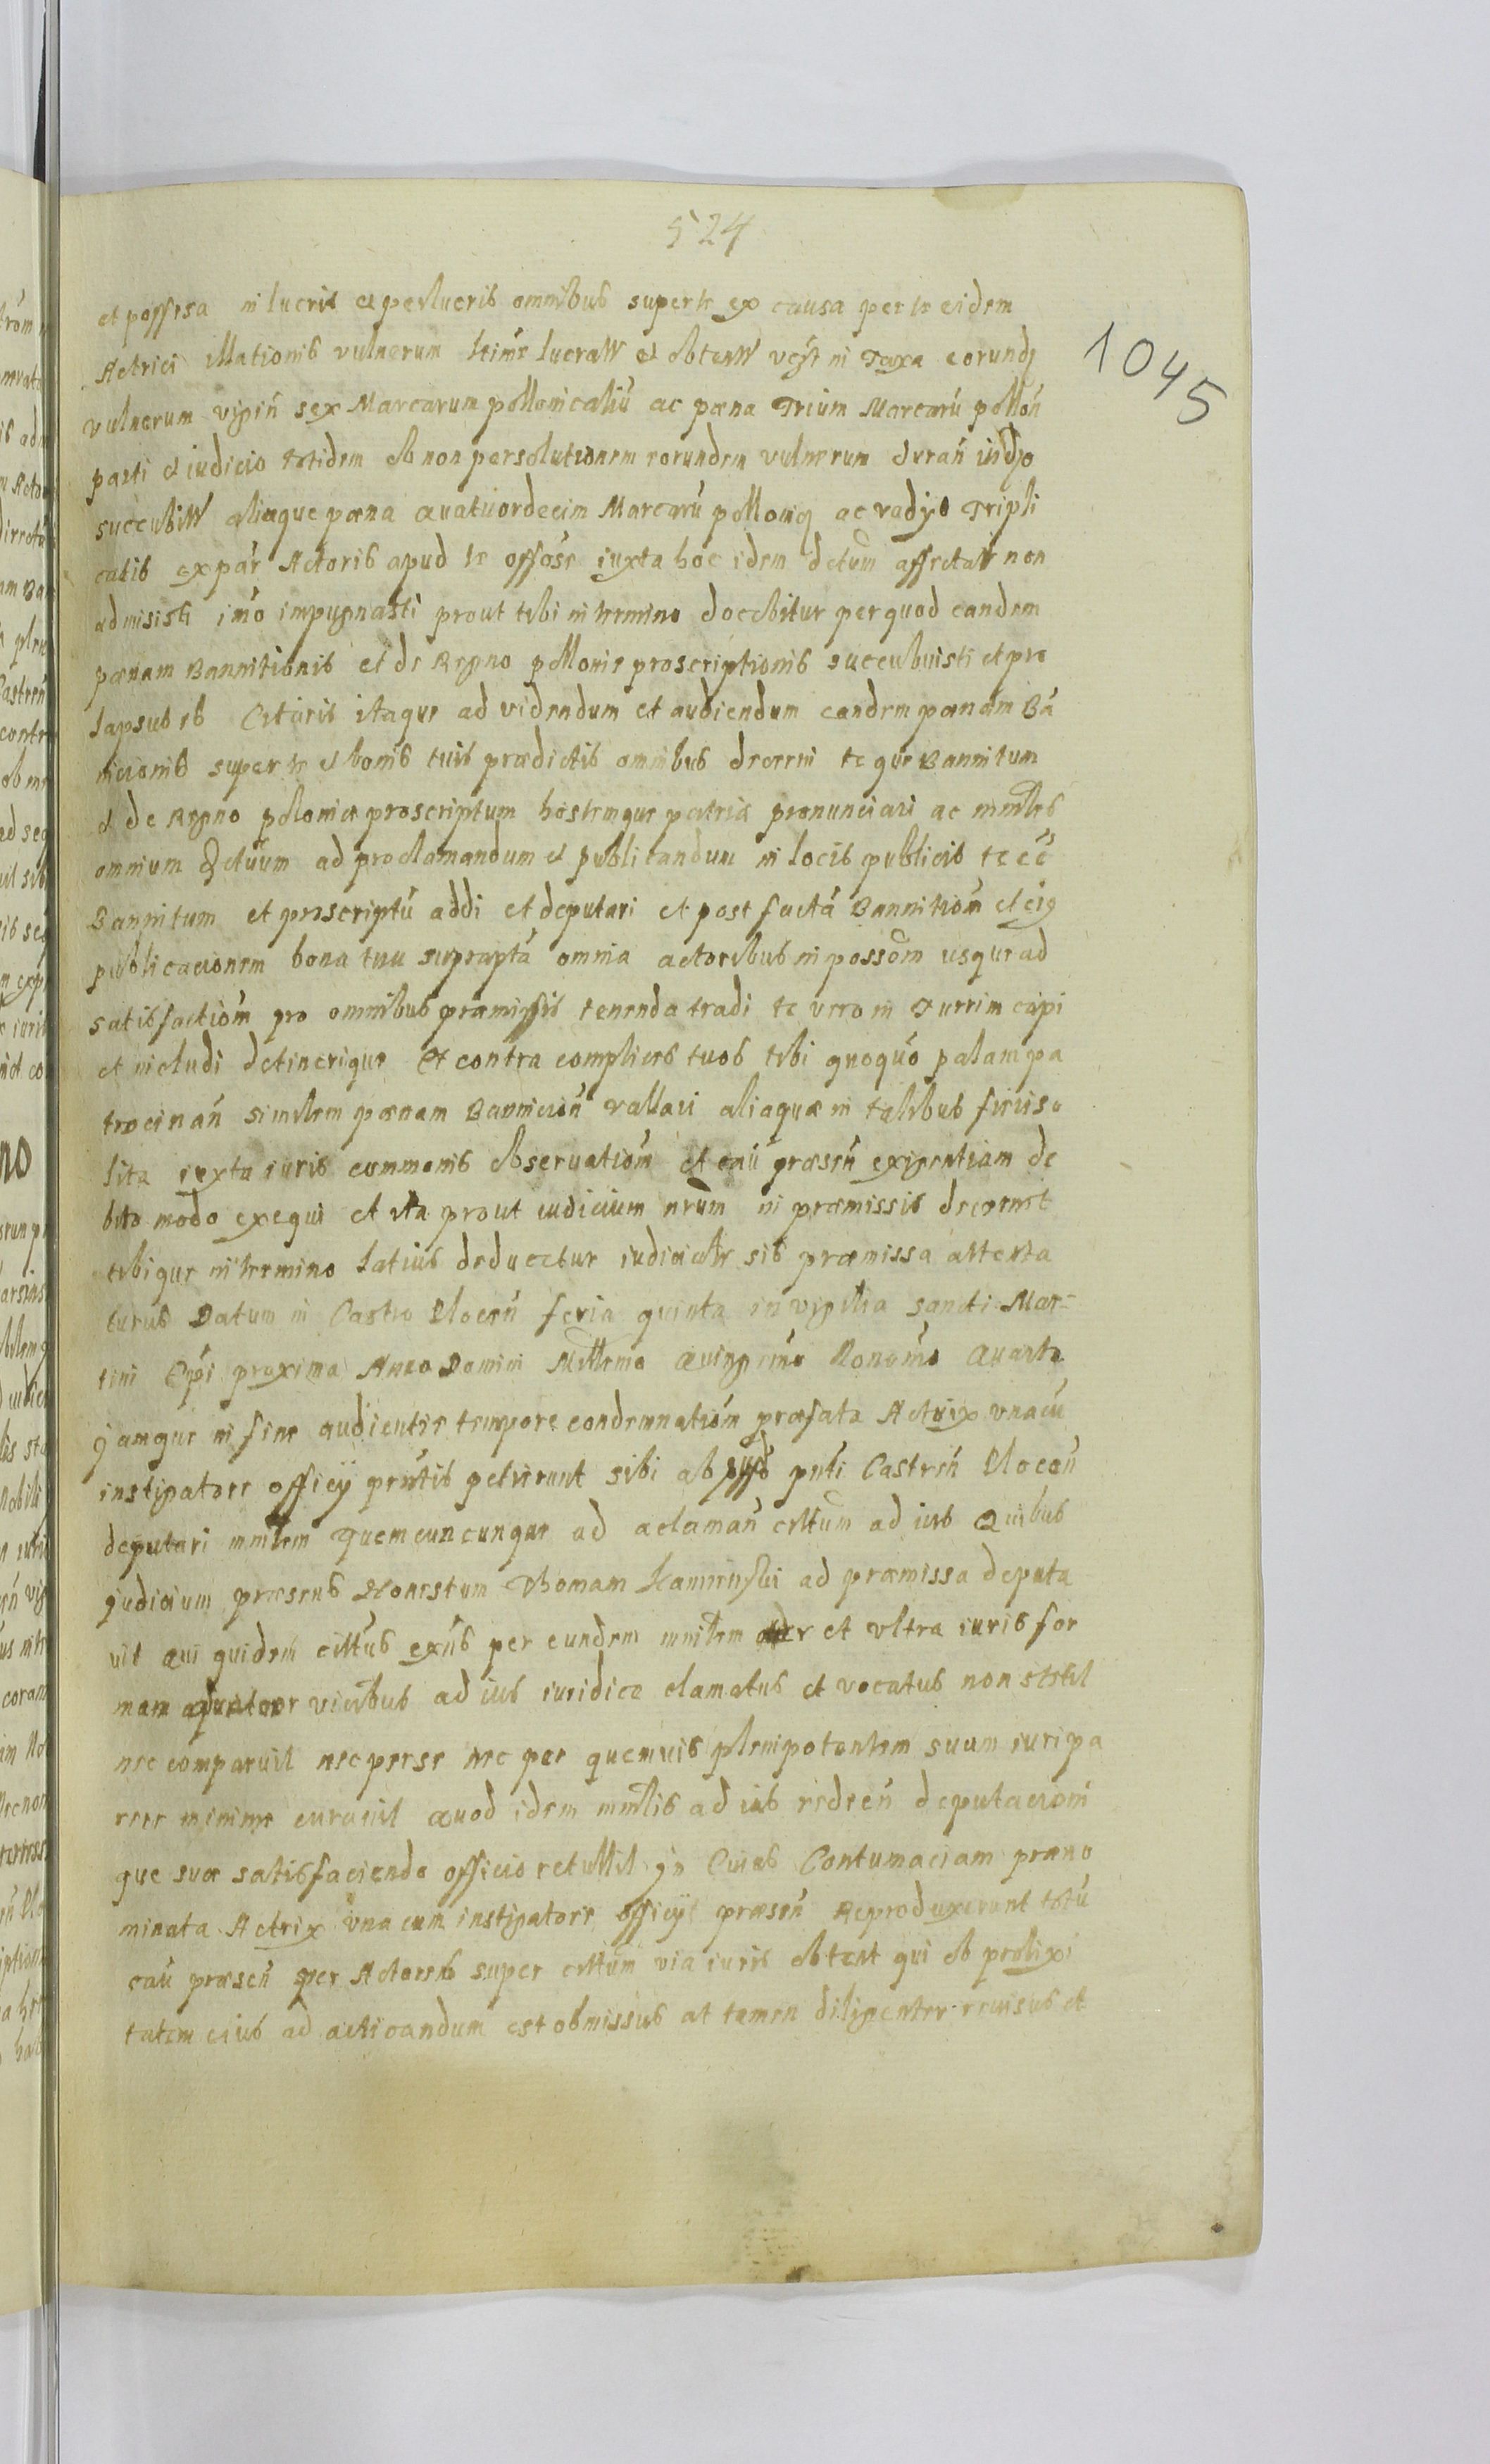 524
1045
et possessa in lucris et perlucris omnibus super te ex causa per te eidem
Actrici illationis vulnerum lucratis et obtentis in Taxa eorundq
vulnerum vigiń sex Marcarum pollonicaliū ac pæna Trium Marcarū polloń
parti et iudicio totidem ob non persolutionem eorundem vulnerum
succubitis aliaque pæna quatuordecim Marcarū pollonicq ac vadÿs Tripli
catis ex pář Actoris apud te offōse iuxta hoc idem dctum affectatis non
admisisti imo impugnasti prout tibi in termino docebitur per quod eandem
pænam Bannitionis et de Regno pollonie proscriptionis succubuisti et pro
lapsus es Citaris itaque ad videndum et audiendum eandem pænam Bā
nicionis super te et bonis tuis prædictis omnibus decerni te que Bannitum
et de Regno poloniæ proscriptum hostemque patriæ pronunciari ac mnlēs
omnium ad proclamandum et publicandum in locis publicis te eē
Bannitum et proscriptū addi et deputari et post factā Bannitiōm et eiq
publicacionem bona tua suprapta omnia actoribus in possōm usque ad
satisfactiōm pro omnibus præmissis tenenda tradi te vero in Turrim capi
et includi detinerique Et contra complices tuos tibi quoquo palam pa
trocinań similem pænam Bannicioń vallari aliaquæ in talibus fieri so
lita iuxta iuris communis obseruatiōm et cāū præseń exigentiam de
bito modo exequi et ita prout iudicium nrum in præmissis decernet
tibique in termino latius deducetur iudicialr sis præmissa attenta
turus Datum in Castro Plocēn feria quinta in vigilia sancti Mar-
tini Epi proxima Anno Domini Millemo Quingmo Nonagmo Quarto
Jamque in fine audientie tempore condemnatiōm præfata Actrix vna cū
instigatore officÿ prntis petierunt sibi ab offo pnti Castreń Plocēn
deputari mnlem Quemcuncunque ad aclamań cittum ad ius Quibus
judicium præsens Honestum Thomam Kaminski ad præmissa deputa
uit Qui quidem cittus exńs per eundem mnlem ter et vltra iuris for
mam quater vicibus ad ius iuridice clamatus et vocatus non stetit
nec comparuit nec per se nec per quemuis plenipotentem suum iuri pa
rere minime curauit Quod idem mnlis ad ius redień deputacioni
que suæ satisfaciendo officio retulit In Cuius Contumaciam præno
minata Actrix vna cum instigatore officÿ præseń Reproduxerunt totū
cāū præseń per Actorem super cittum via iuris obtent qui ob prolixi
tatem eius ad acticandum est obmissus at tamen diligenter reuisus et